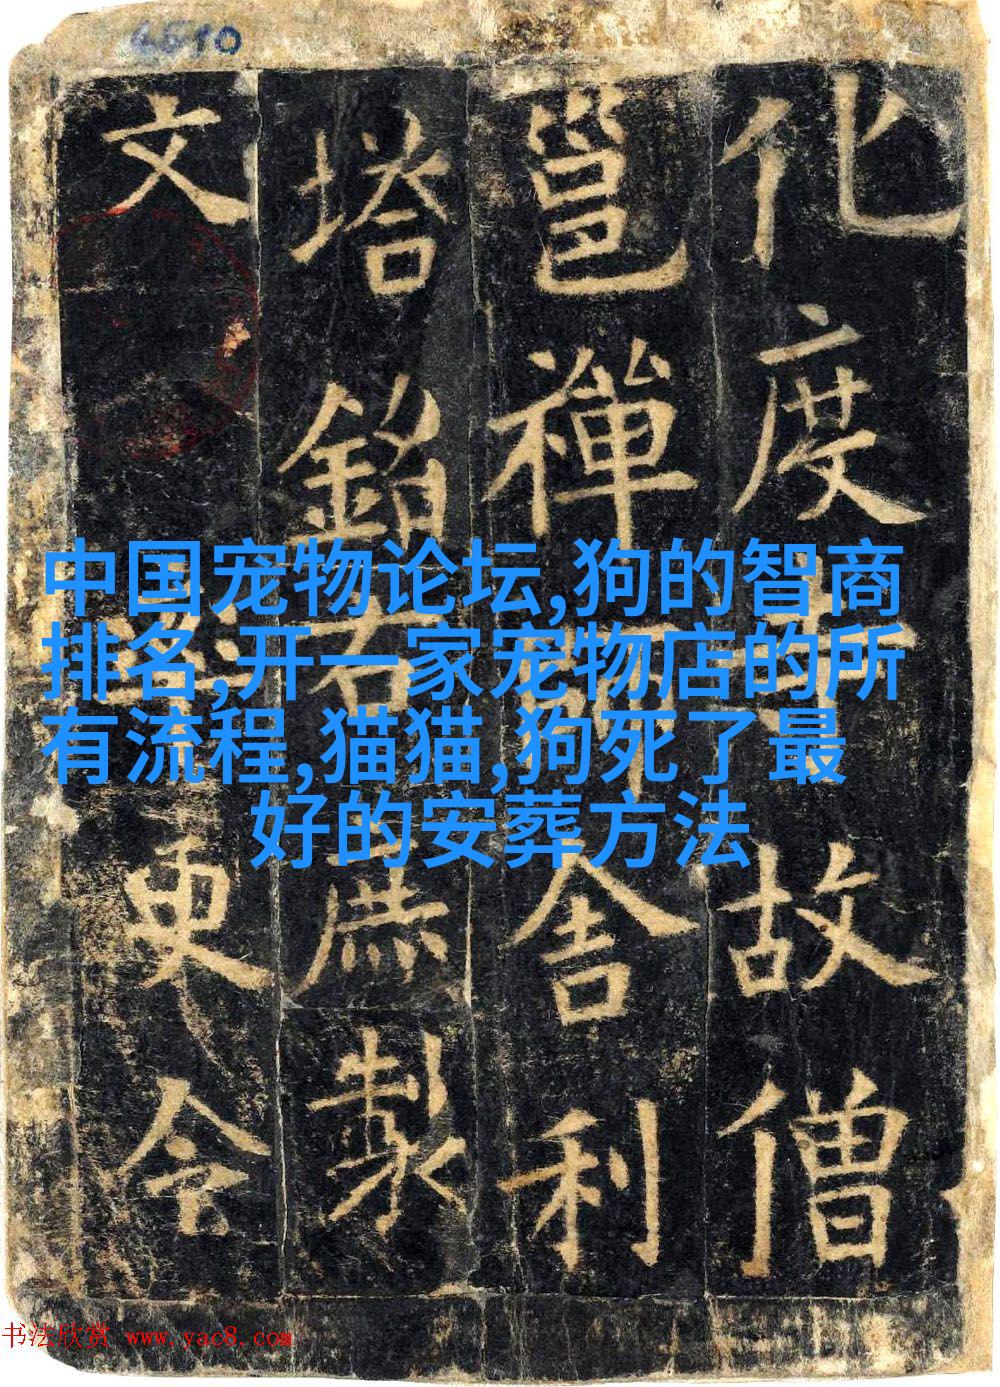 6510
化度寺故僧
邕禪師舍利
塔銘右庶製
文率更令
中国宠物论坛,狗的智商
排名,开一家宠物店的所
有流程,猫猫,狗死了最
好的安葬方法
书法欣赏 www.yac8.com